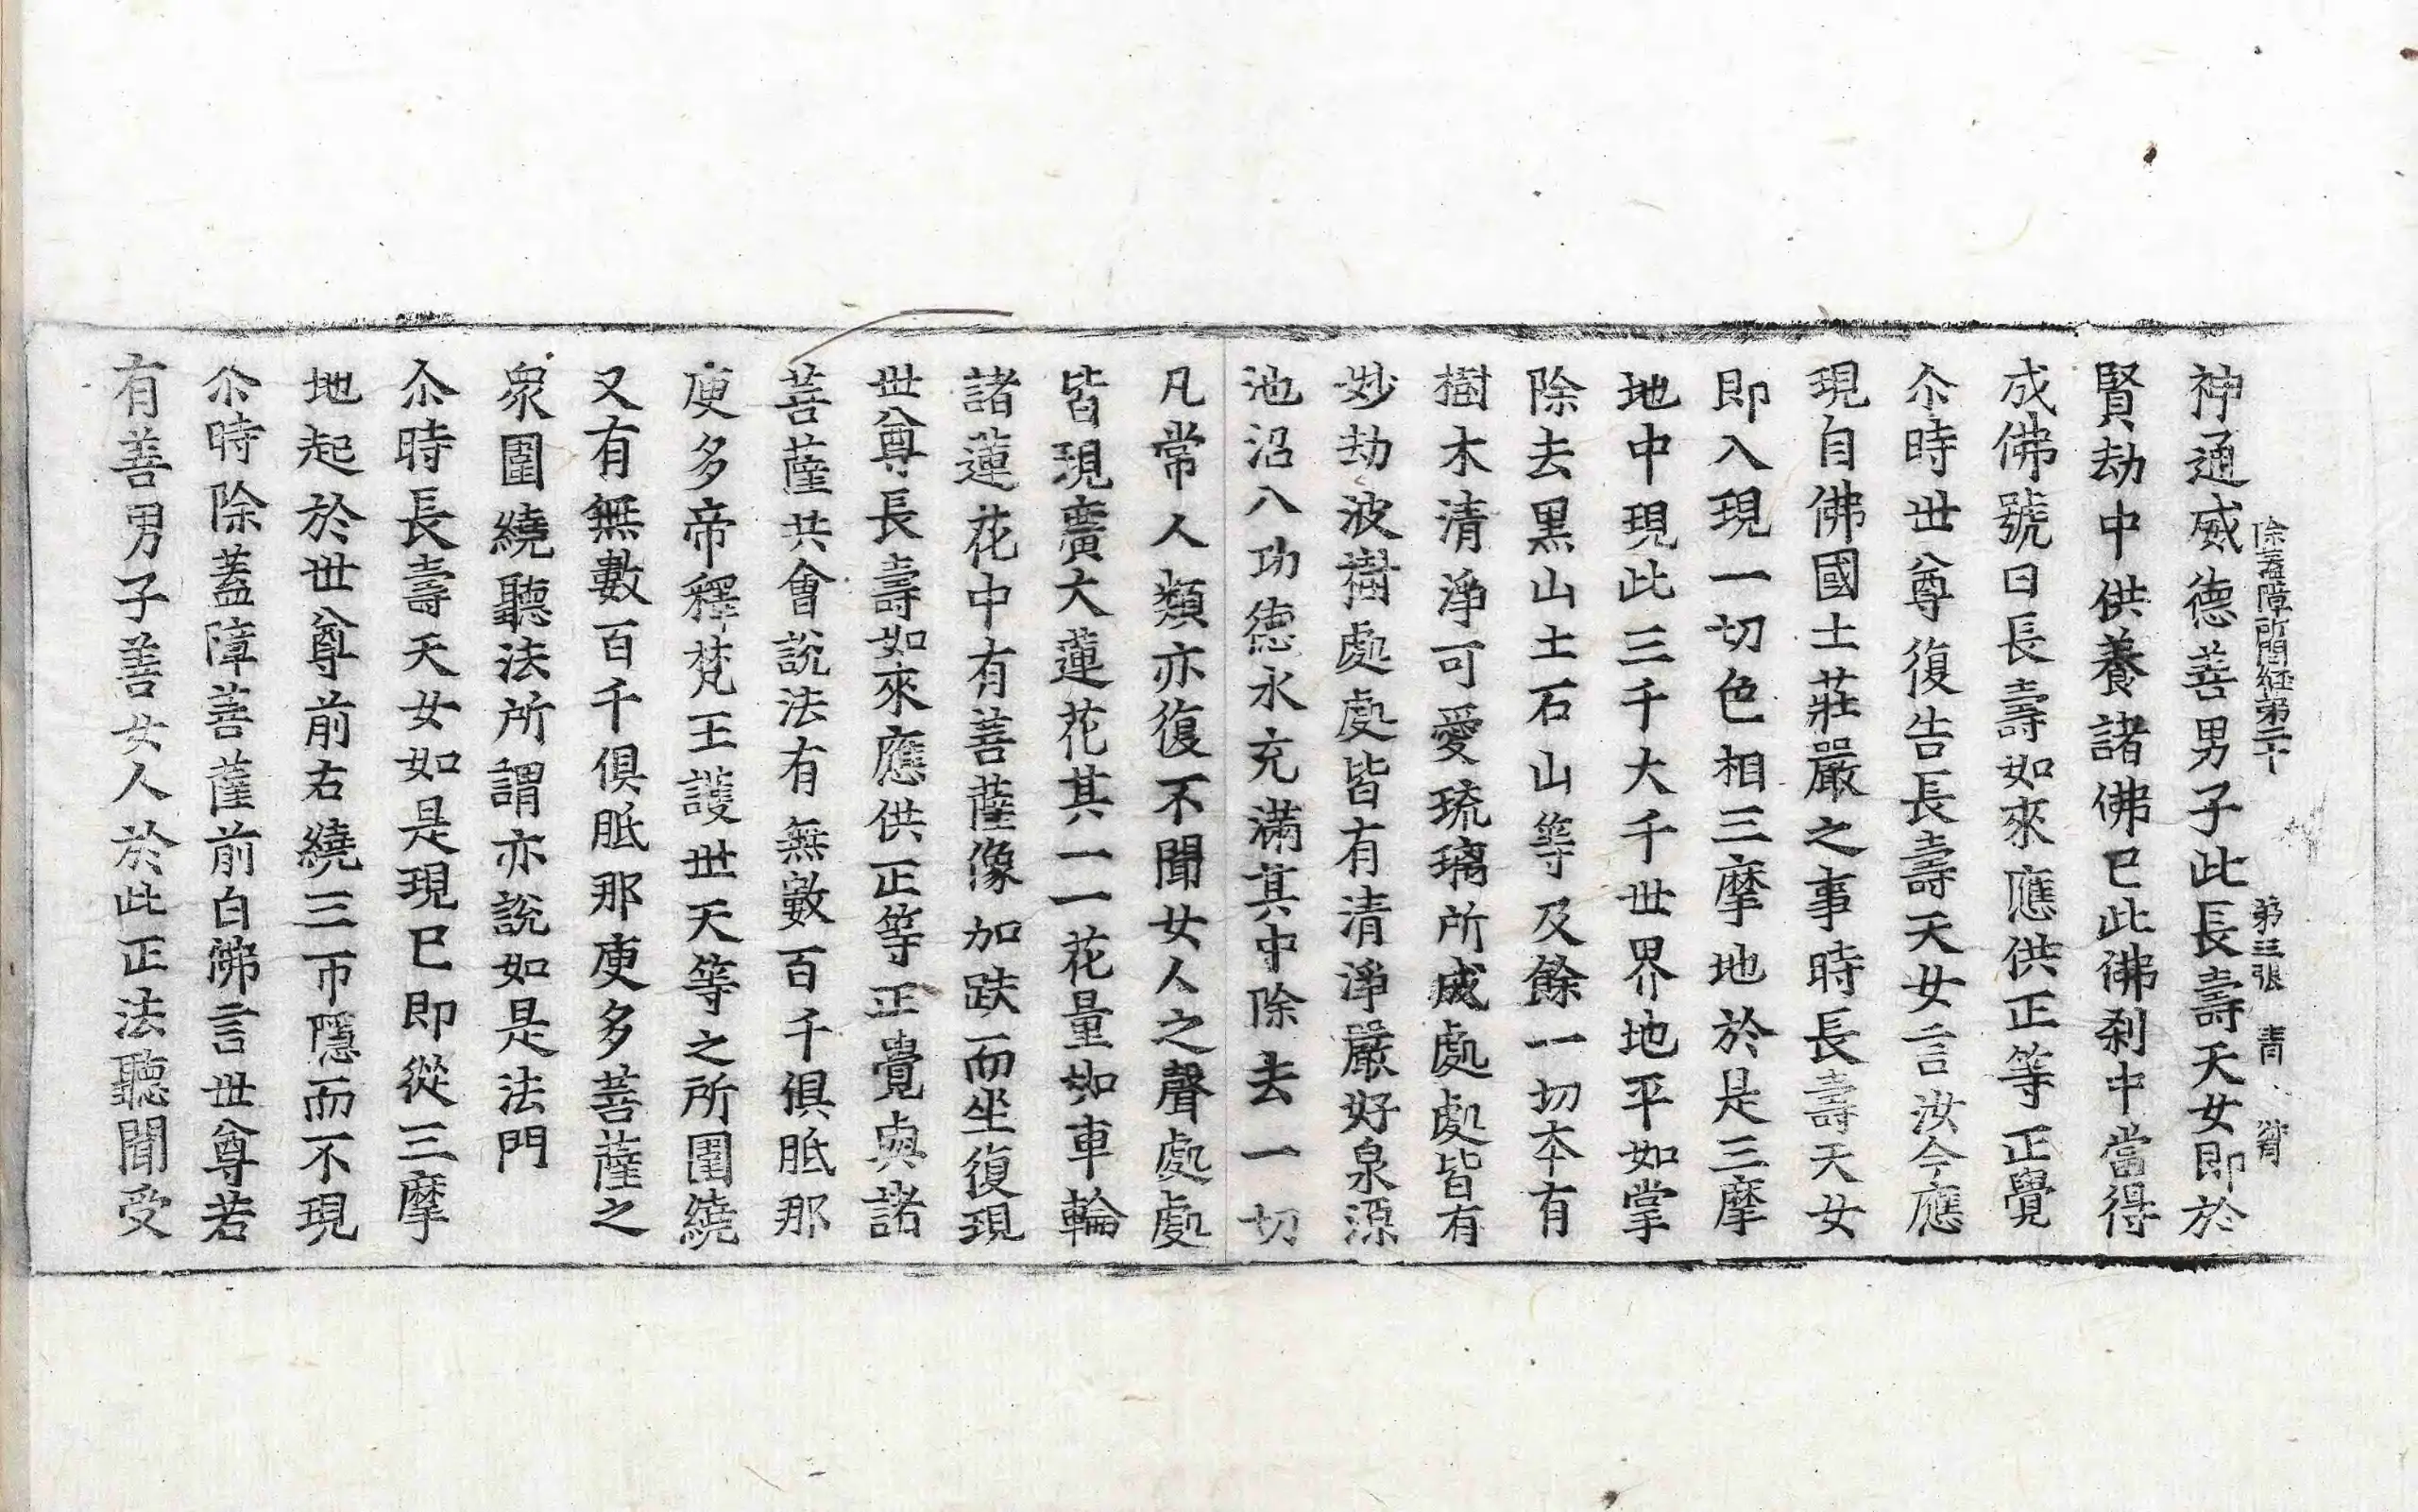 除蓋障所問經第二十　第三張　青
神通威德善男子此長壽天女即於
賢劫中供養諸佛已此佛刹中當得
成佛號曰長壽如來應供正等正覺
尒時世尊復告長壽天女言汝今應
現自佛國土莊嚴之事時長壽天女
即入現一切色相三摩地於是三摩
地中現此三千大千世界地平如掌
除去黑山土石山等及餘一切本有
樹木清淨可愛琉璃所成處處皆有
妙劫波樹處處皆有清淨嚴好泉源
池沼八功德水充滿其中除去一切
凡常人類亦復不聞女人之聲處處
皆現廣大蓮花其一一花量如車輪
諸蓮花中有菩薩像加趺而坐復現
世尊長壽如來應供正等正覺與諸
菩薩共會說法有無數百千俱胝那
庾多帝釋梵王護世天等之所圍繞
又有無數百千俱胝那庾多菩薩之
衆圍繞聽法所謂亦說如是法門
尒時長壽天女如是現已即從三摩
地起於世尊前右繞三帀隱而不現
尒時除蓋障菩薩前白佛言世尊若
有善男子善女人於此正法聽聞受